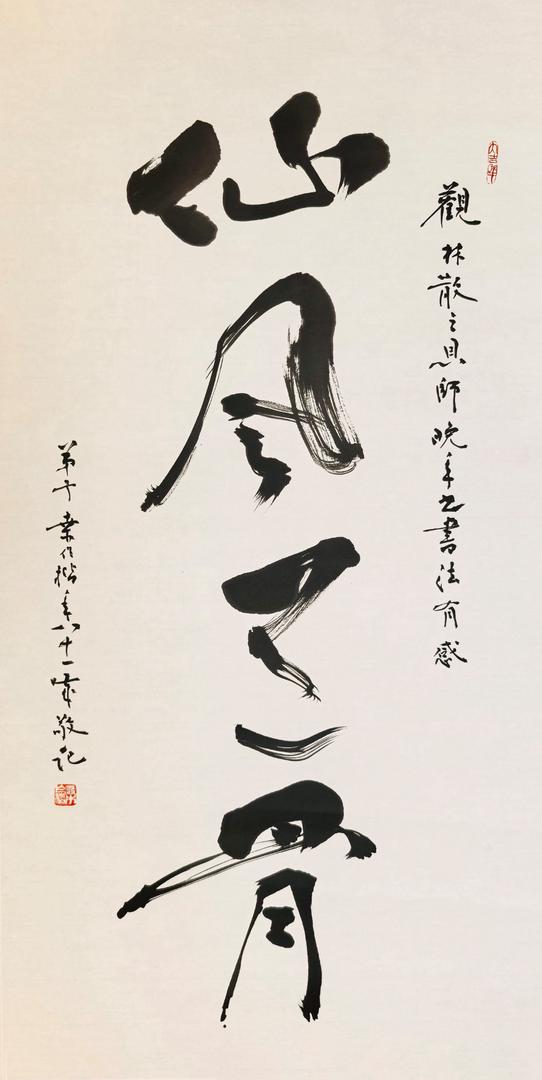 觀林散之恩師晚年之書法有感
仙风道骨
弟子桑作楷年八十一歲敬记